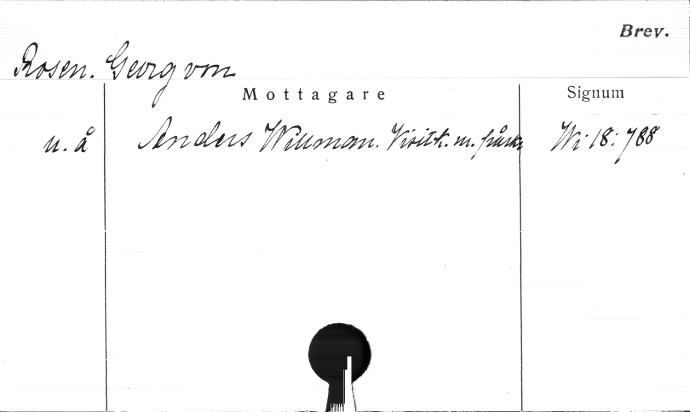 Brev.
Rosen. Georg von
Mottagare Signum
u. å Anders Willman. Visitk. m. Wi: 18: 788